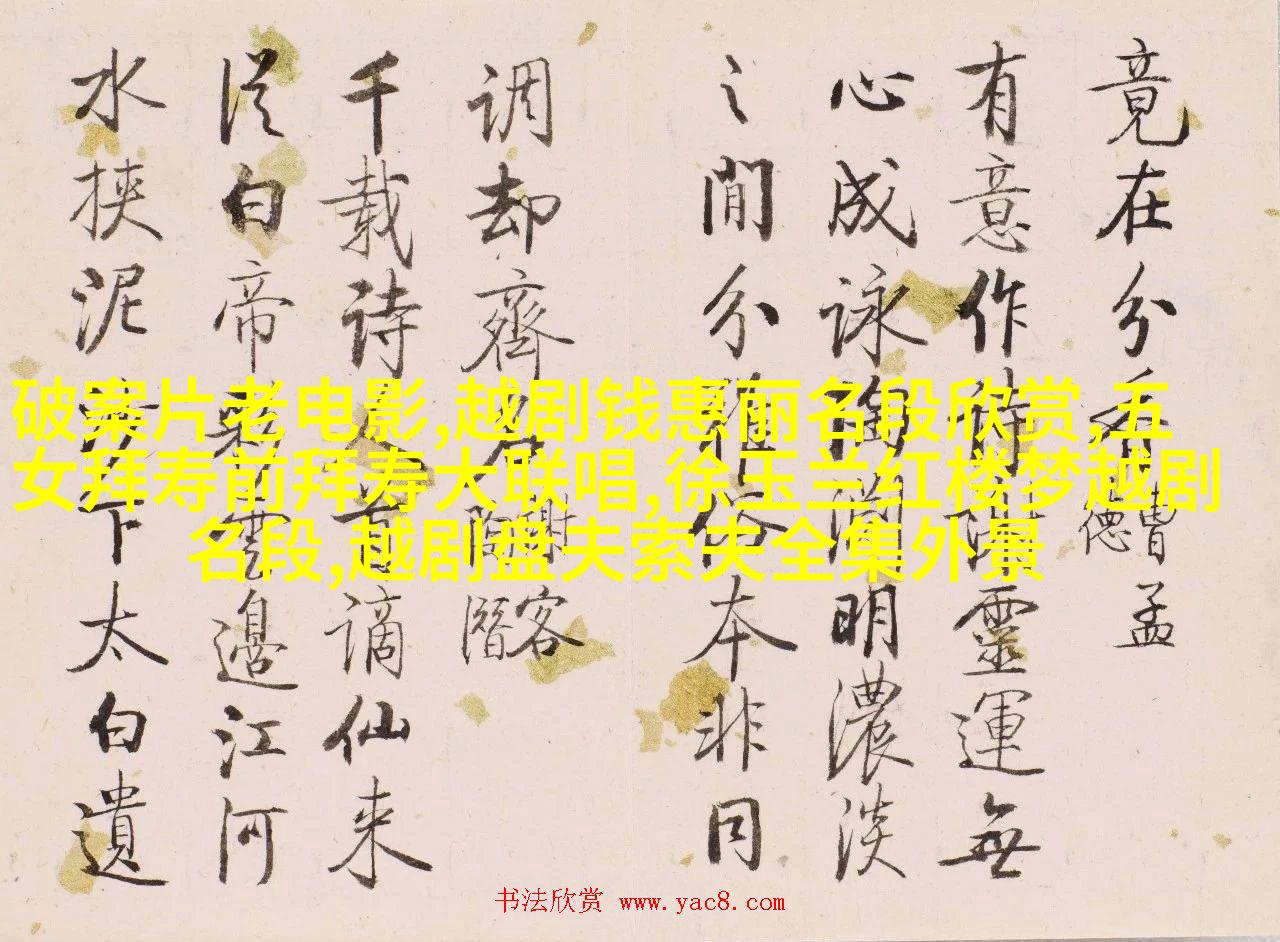 竟在分
曹孟
德
有意作詩謝靈運無
心成詠陶淵明濃淡
之間分雅俗本非同
調却齊名
謝客
陶潛
千載詩人首謫仙来
從白帝彩雲邊江河
水挾泥沙下太白遺
破案片老电影,越剧钱惠丽名段欣赏,五
女拜寿前拜寿大联唱,徐玉兰红楼梦越剧
名段,越剧盘夫索夫全集外景
书法欣赏 www.yac8.com